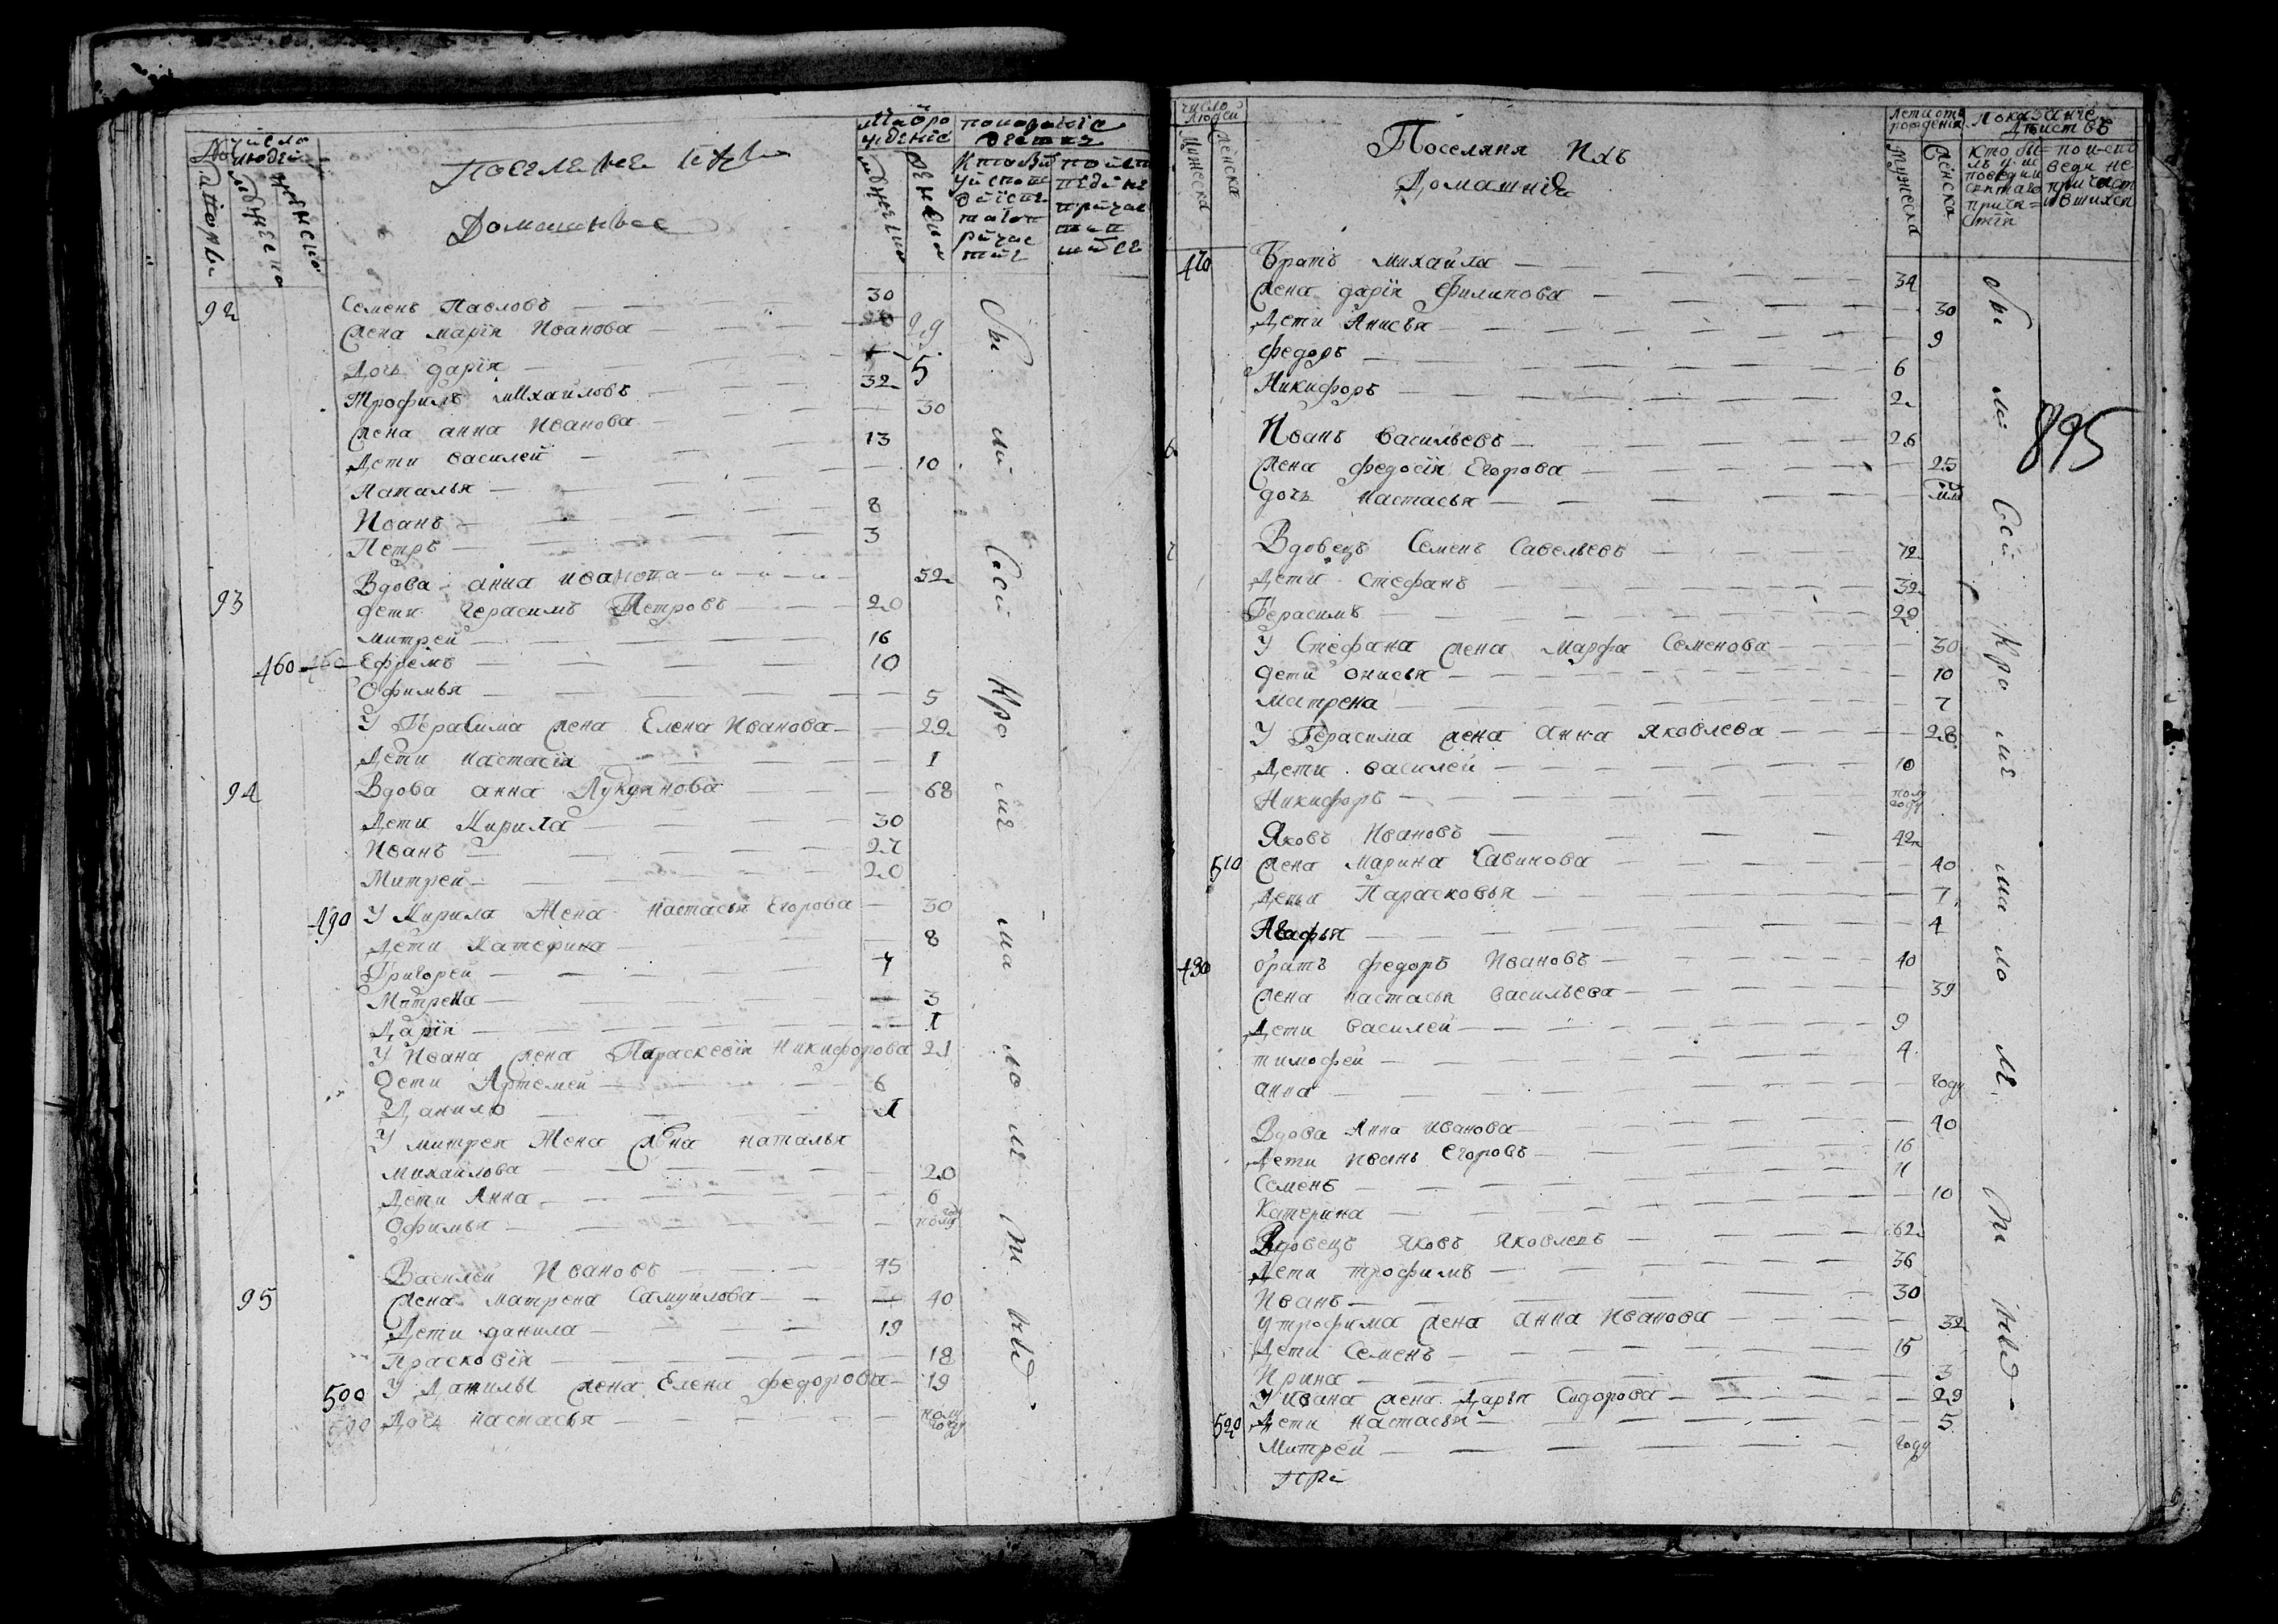 число людей
Поселяне ихъ
Домашные
92
Семенъ Павловъ 30
жена марія Иванова 29
Дочь дарія 5
Трофимъ Михаиловъ 32
жена анна Иванова 30
Дети василей 13
Наталья 10
Иванъ 8
Петръ 3
93 Вдова анна иванова 52
дети герасимъ Петровъ 20
митрей 16
460 Ефремъ 10
Офимья 5
У Герасима жена Елена Иванова 22
Дети настасія 1
94 Вдова анна Лукьянова 68
Дети Кирила 30
Иванъ 27
Митрей 20
490 У Кирила Жена настасья Егорова 30
Дети Катерина 8
Григорей 7
Матрена 3
Дарія 1
У Ивана жена Параскевія Никифорова 21
Дети Артемей 6
Данило 1
У митрея Жена жена наталья
Михаилова 20
Дети Анна 6
Офимья полу году
95 Василей Ивановъ 45
жена матрена Самуилова 40
Дети данила 19
Прасковія 18
500 У Данилы жена Елена федорова 19
500 Дочь настасья полу году
число людей
Мужеска
женска
Поселяня ихъ
Домашнія
лета отъ рожденія
Мужеска
женска
Показаніе действъ
470 Братъ михаила 34
жена дарія Филипова 30
Дети Анисья 9
Федоръ 6
Никифоръ 2
Иванъ васильевъ 26
жена федосія Егорова 25
дочь настасья
895
Вдовецъ Семенъ Савельевъ 72
Дети стефанъ 32
Герасимъ 29
У Стефана жена Марфа Семенова 30
дети онисья 10
матрена 7
У Герасима жена анна яковлева 28
Дети василей 10
Никифоръ полу году
Яковъ Ивановъ 42
510 жена Марина Савинова 40
Дети Парасковья 7
Агафья 4
480 братъ федоръ Ивановъ 40
жена настасья васильева 39
Дети василей 9
тимофей 4
анна году
Вдова Анна иванова 40
Дети Иванъ Егоровъ 16
Семенъ 11
Катерина 10
Вдовецъ яковъ яковлевъ 62
Дети трофимъ 36
Иванъ 30
у трофима жена анна Иванова 32
Дети Семенъ 15
Ирина 3
У ивана жена Дарья Сидорова 29
520 Дети настасья 5
Митрей году